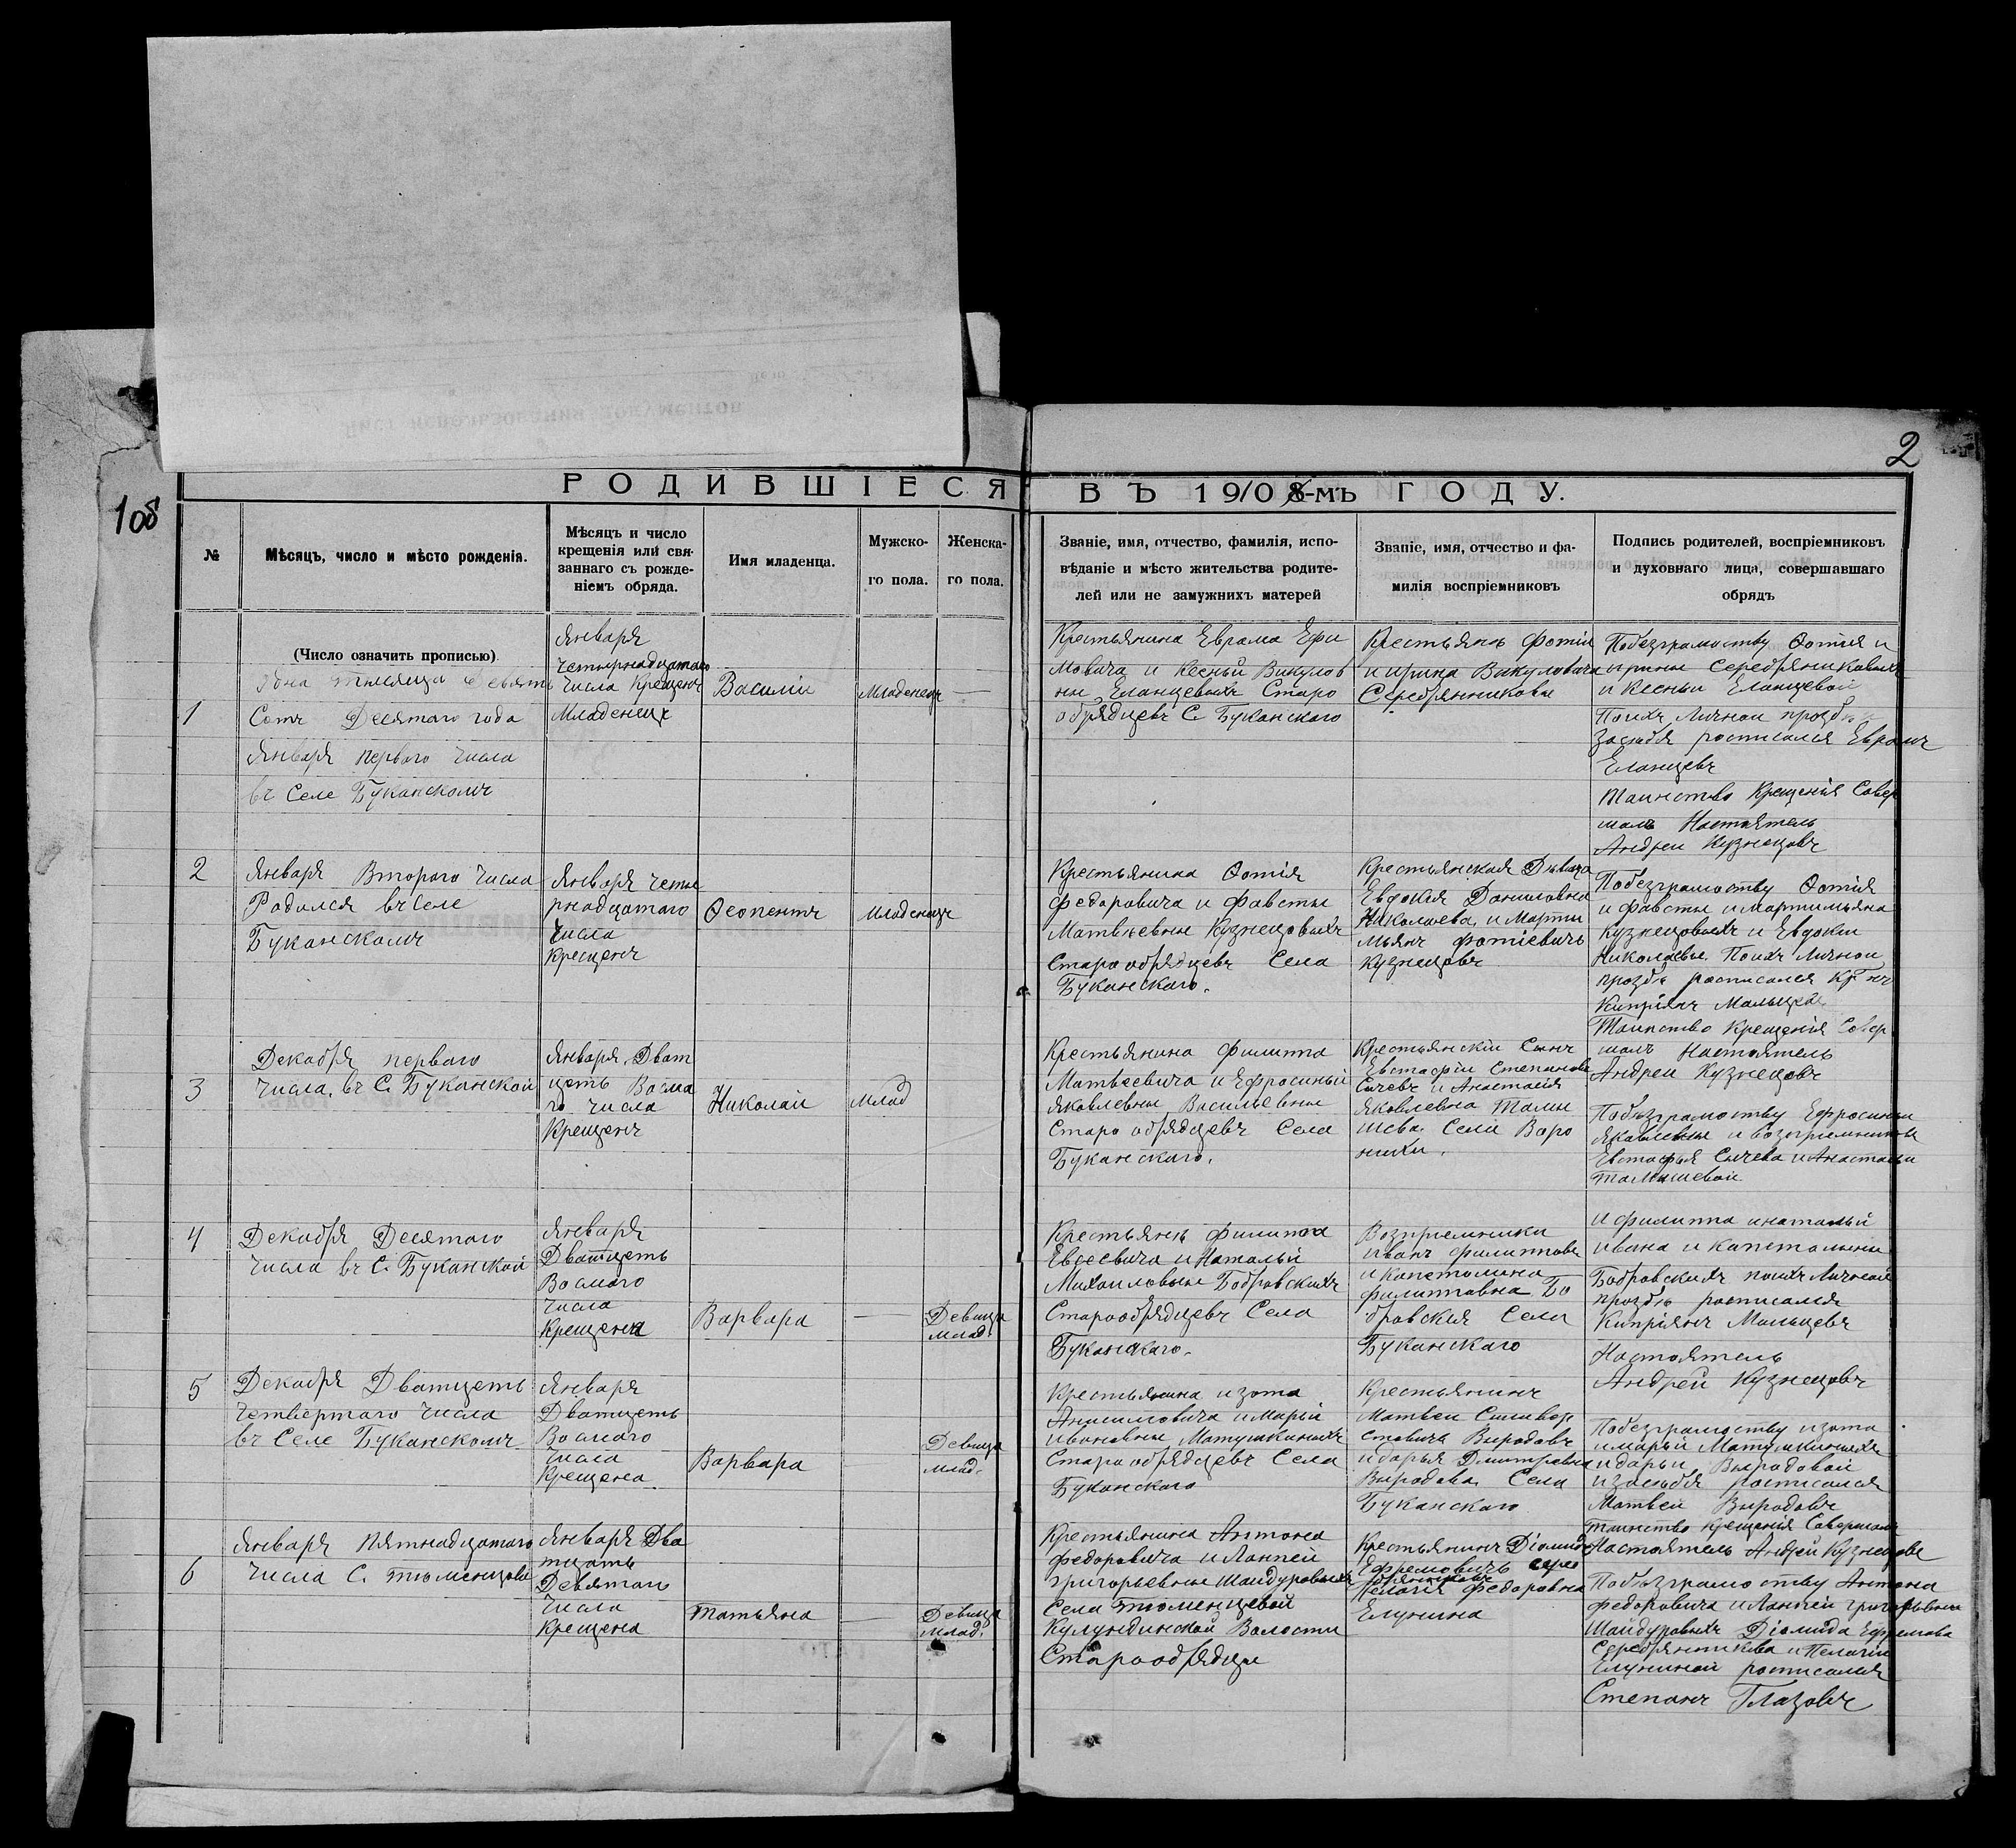 2
1 об
РОДИВШІЕСЯ ВЪ 1908-мъ ГОДУ.
№
Мѣсяцъ, число и мѣсто рожденія.
Мѣсяцъ и число
крещенія или свя-
заннаго съ рожде-
ніемъ обряда.
Имя младенца.
Мужско-
го пола.
Женска-
го пола.
Званіе, имя, отчество, фамилія, испо-
вѣданіе и мѣсто жительства родите-
лей или не замужнихъ матерей
Званіе, имя, отчество и фа-
милія воспріемниковъ
Подпись родителей, воспріемниковъ
и духовнаго лица, совершавшаго
обрядъ
(Число означить прописью)
1
Одна тысяща девять
Сотъ Десятаго года
Января перваго числа
въ Селе Буканскомъ
Января
четырнадцатаго
числа Крещенъ
Младенецъ
Василіи
Младенецъ
—
Крестьянина Еврама Ефи
мовича и Ксеньи Викулов
ны Еланцевыхъ Старо
обрядцевъ С. Буканскаго
Крестьянъ Фотіи
и Ирина Викуловича
Серебрянниковы
Побезграмотству Ѳотія и
ирины Серебряниковыхъ
и Ксеньи Еланцевой
Поихъ Личнои прозбѣ
засебя росписался Еврамъ
Еланцевъ
Таинство Крещенія Совер
шалъ Настоятель
Андреи Кузнецовъ
2
Января Второго числа
Родился въ Селе
Буканскомъ
Января четы
рнадцатаго
числа
Крещенъ
Ѳеопентъ
Младенецъ
Крестьянина Ѳотія
Федоровича и Фавсты
Матвѣевны Кузнецовыхъ
Старообрядцевъ Села
Буканскаго.
Крестьянская Дѣвица
Евдокия Даниловна
Николаева и Марти
мьянъ Фотіевичъ
Кузнецовъ
Побезграмотству Ѳотія
и Фавсты и Мартимьяна
Кузнецовыхъ и Евдокіи
Николаевы Поихъ Личнои
прозбѣ росписался
Кипріянъ Мальцевъ
Таинство Крещенія Совер
шалъ Настоятель
Андреи Кузнецовъ
3
Декабря перваго
числа. въ С. Буканской
Января Дват
цеть Восма
го числа
Крещенъ
Николаи
Млад
Крестьянина Филиппа
Матвеевича и Ефросиньи
Яковлевны Васильевны
Старо обрядцевъ Села
Буканскаго.
Крестьянскіи Сынъ
Евстафіи Степановъ
Сычевъ и Анастасія
Яковлевна Талы
шева Села Воро
нихи.
Побезграмотству Ефросиньи
Яковлевны и возприемниковъ
Евстафья Сычева и Анастасьи
Талышевои
4
Декабря Десятаго
числа въ С. Буканской
Января
Дватцеть
Восмаго
числа
Крещена
Варвара
—
Девица
млад.
Крестьянъ Филиппа
Евсеевича и Натальи
Михаиловны Бобровскихъ
Старообрядцевъ Села
Буканскаго.
Возприемники
Иванъ Филипповъ
и Капетолина
Филипповна Бо
бровския Села
Буканскаго
и Филиппа инатальи
Ивана и Капетолины
Бобровскихъ поихъ Личной
прозбѣ росписался
Кипріянъ Мальцевъ
Настоятель
Андрей Кузнецовъ
5
Декабря Дватцеть
четвертаго числа
въ Селе Буканскомъ
Января
Дватцеть
Восмаго
числа
Крещена
Варвара
Девица
млад.
Крестьянина изота
Анисимовича и Марьи
Ивановны Матушкиныхъ
Старообрядцевъ Села
Буканскаго
Крестьянинъ
Матвеи Силивер
стовичъ Выродовъ
и дарья Дмитревна
Выродова Села
Буканскаго
Побезграмотству изота
и марьи Матушкиныхъ
и дарьи Выродовой
и засебя росписался
Матвеи Выродовъ
Таинство Крещенія Совершалъ
Настоятель Андрей Кузнецовъ
6
Января пятнадцатаго
числа С. тюменцова
Января Два
тцать
Девятаго
числа
Крещена
Татьяна
—
Девица
млад.
Крестьянина Антона
Федоровича и
григорьевны Шайдуровыхъ
Села Тюменцевой
Кулундинской Волости
Старообрядцы
Крестьянинъ Діомидъ
Ефремовичъ сере
бряниковъ
Пелагія Федоровна
Елунина
Побезграмотству Антона
Федоровича и григорьевны
Шайдуровыхъ Діомида Ефремова
Серебряникова и Пелагіи
Елуниной росписался
Степанъ Глазовъ